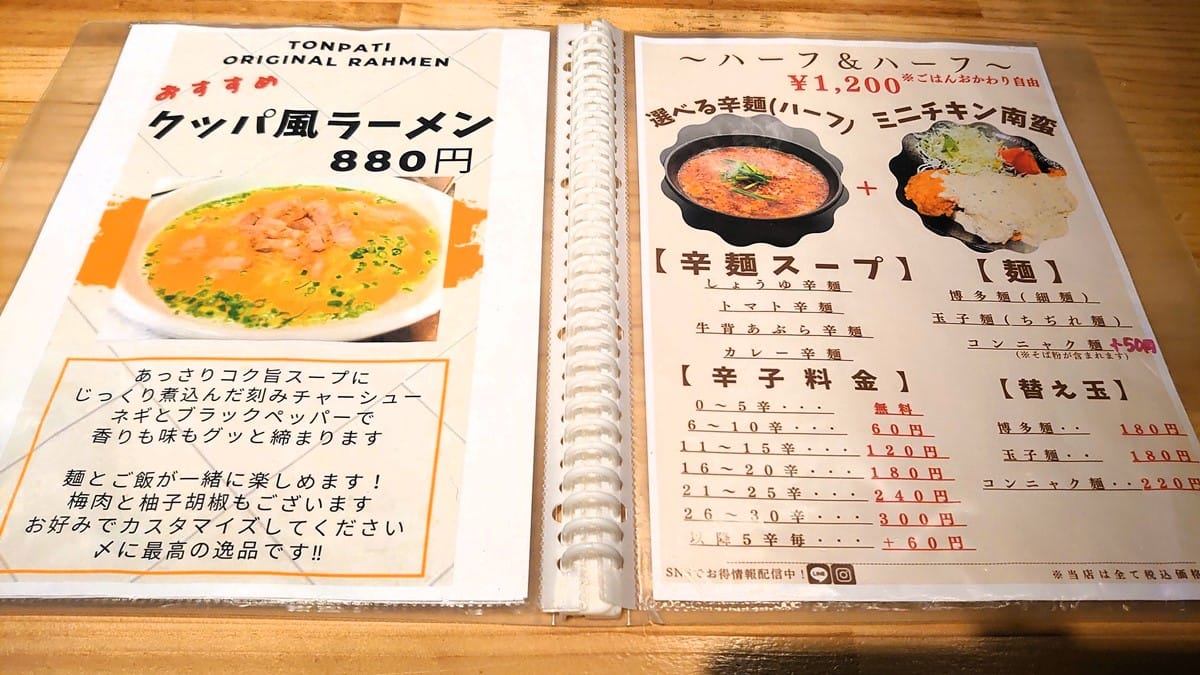 TONPATI
ORIGINAL RAHMEN
おすすめ
クッパ風ラーメン
880円
あっさりコク旨スープに
じっくり煮込んだ刻みチャーシュー
ネギとブラックペッパーで
香りも味もグッと締まります
麺とご飯が一緒に楽しめます！
梅肉と柚子胡椒もございます
お好みでカスタマイズしてください
〆に最高の逸品です‼
～ハーフ＆ハーフ～
¥1,200※ごはんおかわり自由
選べる辛麺(ハーフ)
ミニチキン南蛮
+
【辛麺スープ】
しょうゆ辛麺
トマト辛麺
牛背あぶら辛麺
カレー辛麺
【麺】
博多麺(細麺)
玉子麺(ちぢれ麺)
コンニャク麺 +50円
(※そば粉が含まれます)
【辛子料金】
0～5辛・・・ 無料
6～10辛・・・ 60円
11～15辛・・・ 120円
16～20辛・・・ 180円
21～25辛・・・ 240円
26～30辛・・・ 300円
以降5辛毎・・・ +60円
【替え玉】
博多麺・・ 180円
玉子麺・・ 180円
コンニャク麺・・220円
SNSでお得情報配信中！ LINE
※当店は全て税込価格